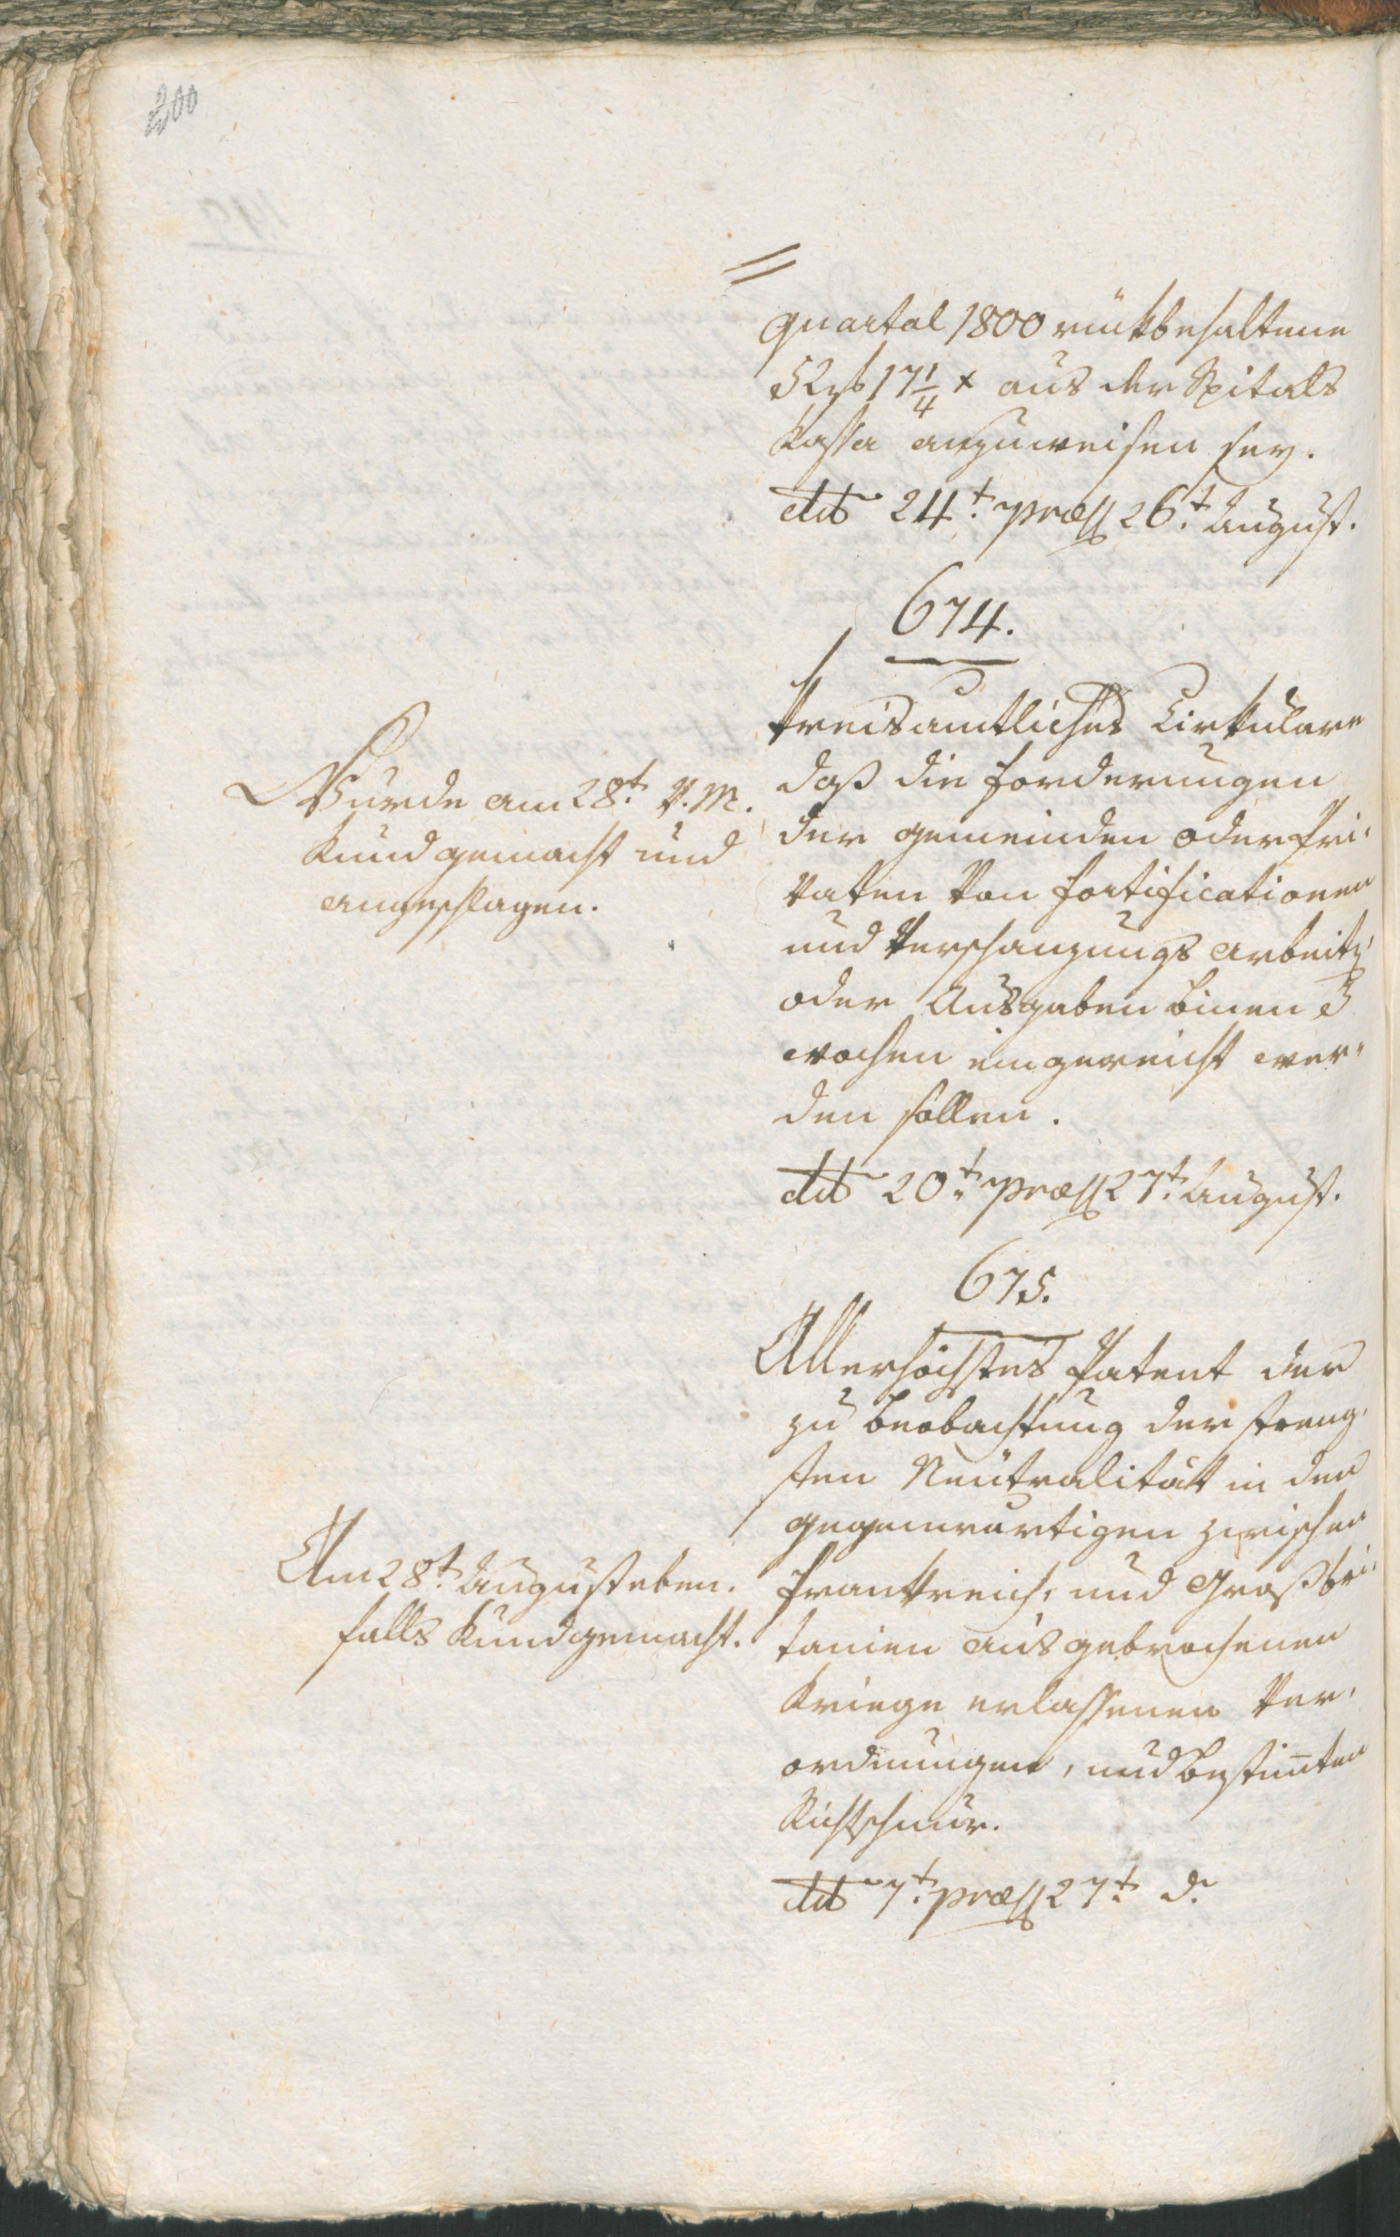 200
=
quartal 1800 rükbehaltene
52 f 17 1/4 x aus der Spitals
Kassa anzuweisen sey.
ddo 24t. præs 26t. August.
674.
Kreisamtliches Cirkulare
daß die Forderungen
der Gemeinden oder Pri-
vaten von Fortificationen
und Verschanzungs arbeiten
oder Ausgaben binen 3
wochen eingereicht wer-
den sollen.
ddo 20t. præs 27t. August.
Wurde am 28t. v. M.
Kund gemacht und
angeschlagen.
675.
Allerhöchstes Patent der
zu Beobachtung der streng-
sten Neutralität in den
gegenwärtigen zwischen
Frankreich, und Großbri-
tanien ausgebrochenen
Kriege erlassenen Ver-
ordnungen, und bestim̄ten
Richtschnur.
ddo 7t. præs 27t. d.
Am 28t. August eben-
falls Kundgemacht.